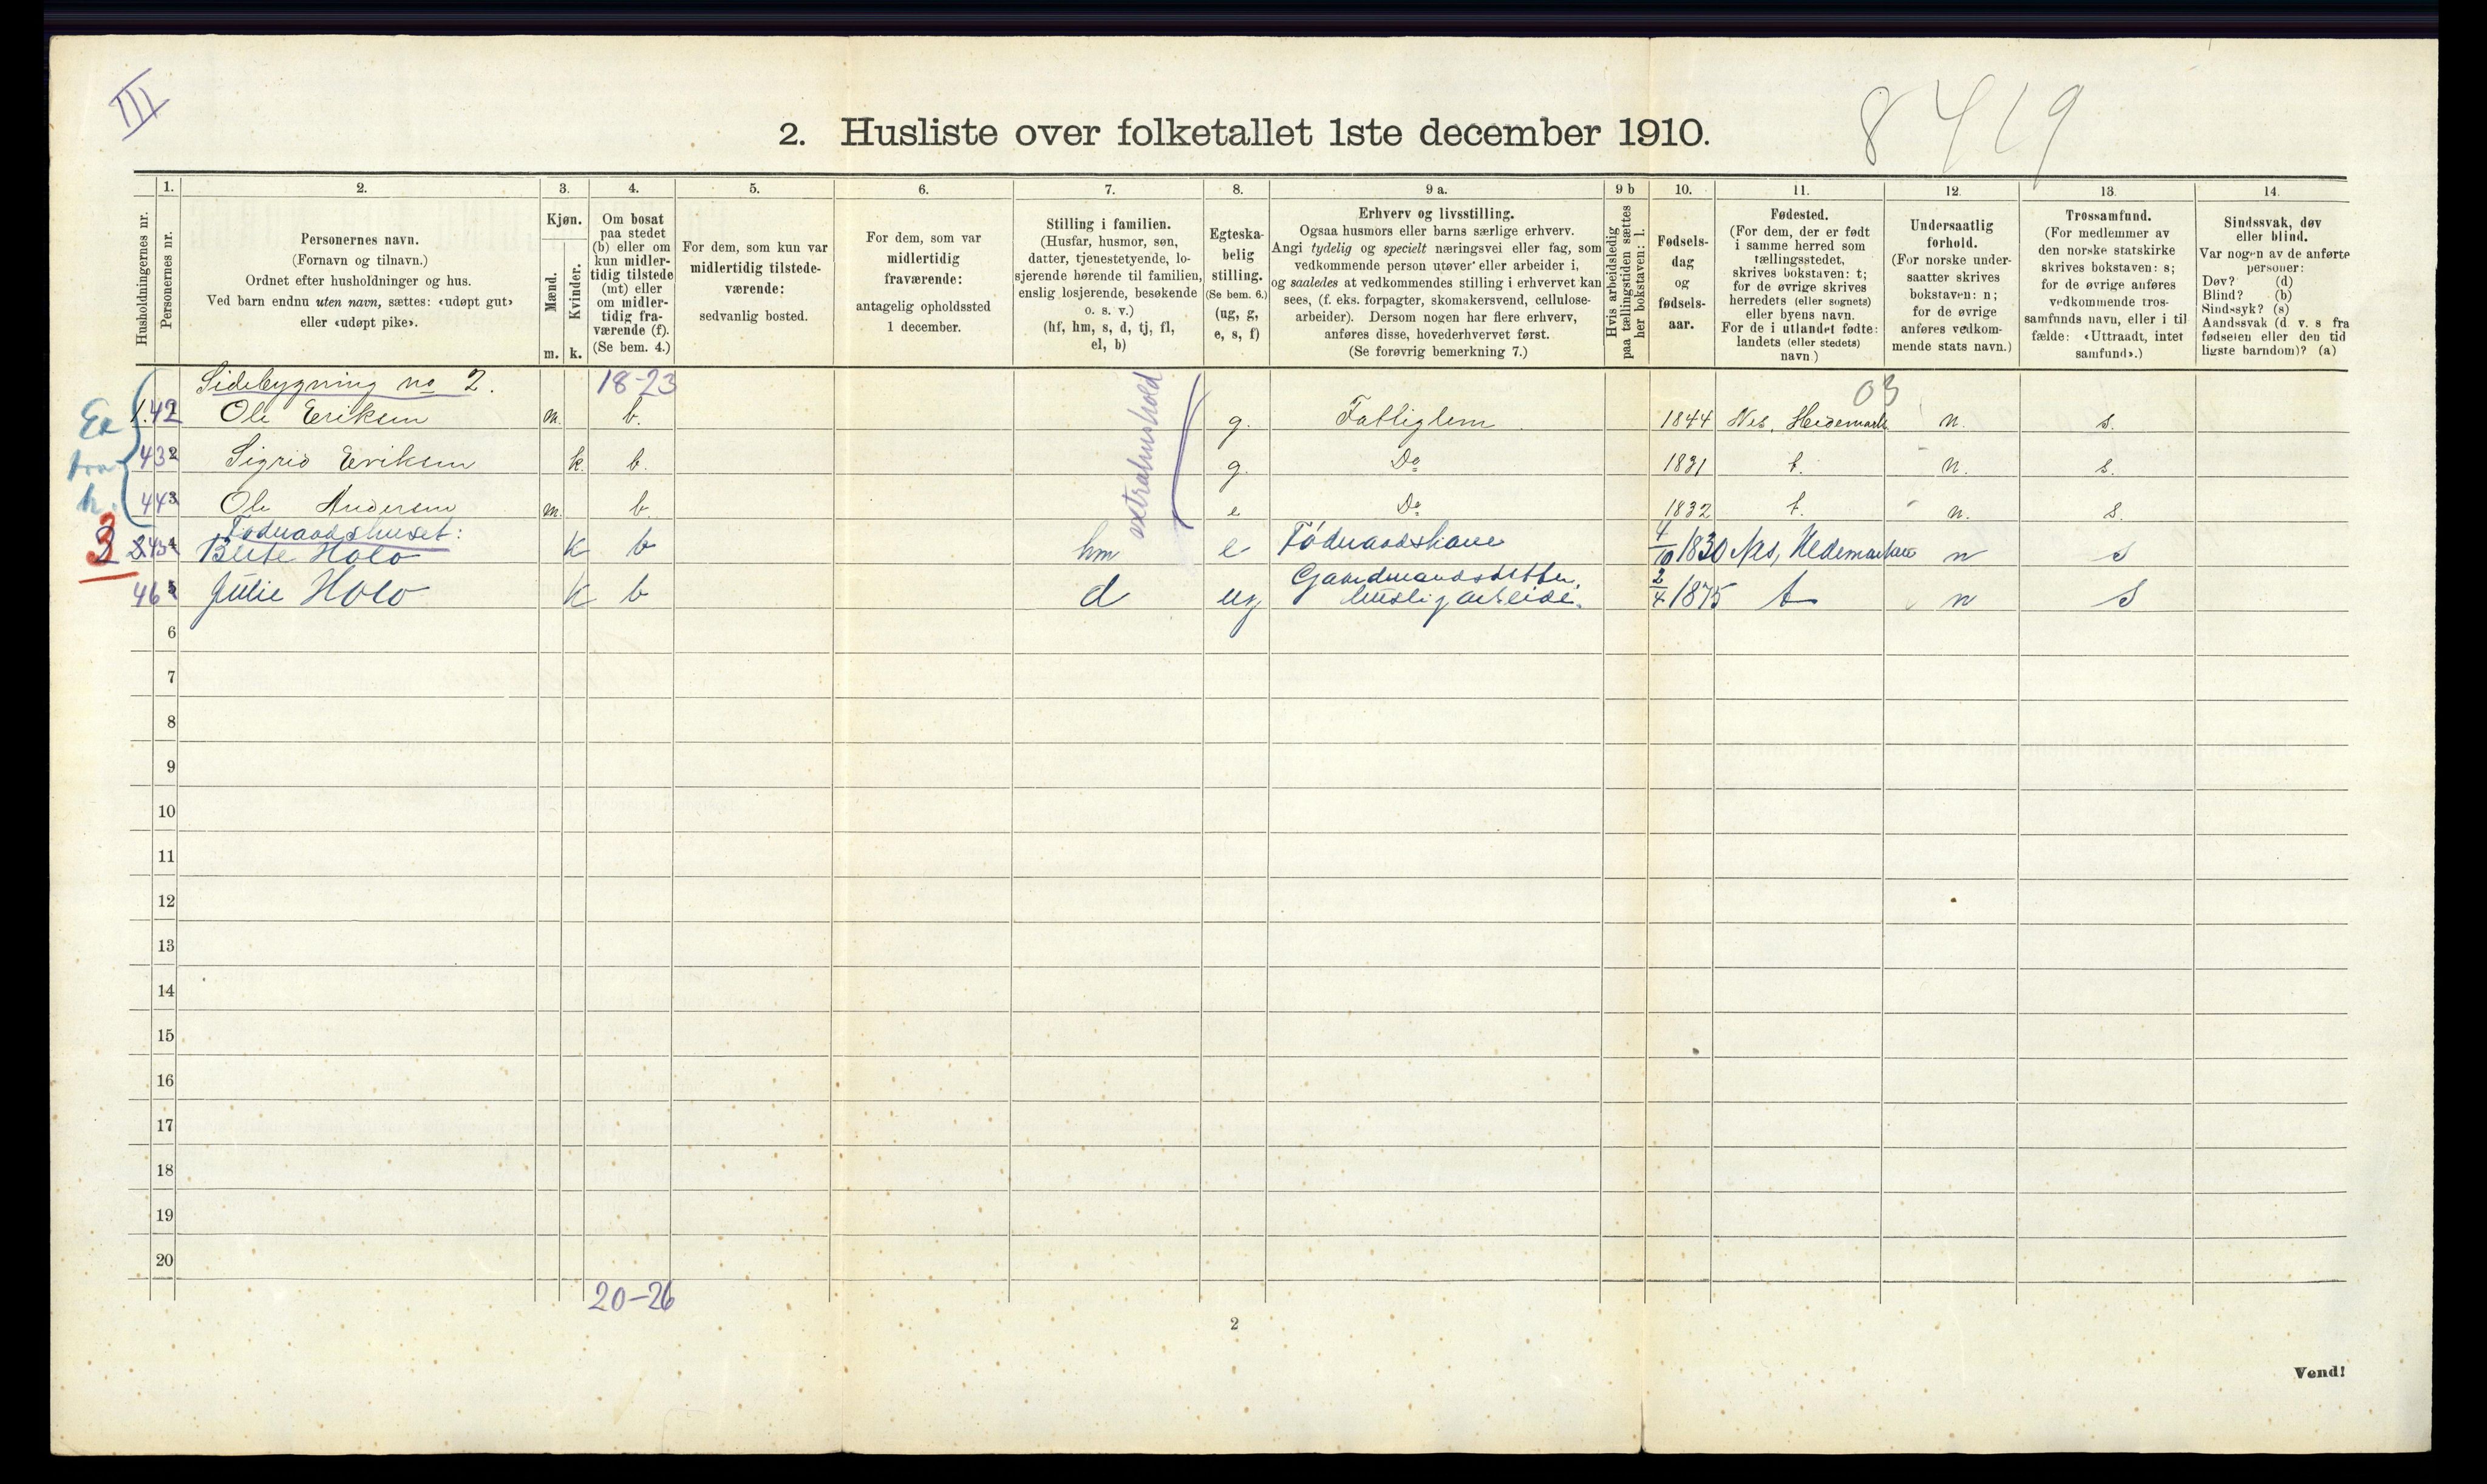 III
8419
2. Husliste over folketallet 1ste december 1910.
Husholdningernes nr.
1.
Personernes nr.
2.
Personernes navn.
(Fornavn og tilnavn.)
Ordnet efter husholdninger og hus.
Ved barn endnu uten navn, sættes: «udøpt gut»
eller «udøpt pike».
3.
Kjøn.
Mænd.
Kvinder.
m. k.
4.
Om bosat
paa stedet
(b) eller om
kun midler-
tidig tilstede
(mt) eller
om midler-
tidig fra-
værende (f).
(Se bem. 4.)
5.
For dem, som kun var
midlertidig tilstede-
værende:
sedvanlig bosted.
6.
For dem, som var
midlertidig
fraværende:
antagelig opholdssted
1 december.
7.
Stilling i familien.
(Husfar, husmor, søn,
datter, tjenestetyende, lo-
sjerende hørende til familien,
enslig losjerende, besøkende
o. s. v.)
(hf, hm, s, d, tj, fl,
el, b)
8.
Egteska-
belig
stilling.
(Se bem. 6.)
(ug, g,
e, s, f)
9 a.
Erhverv og livsstilling.
Ogsaa husmors eller barns særlige erhverv.
Angi tydelig og specielt næringsvei eller fag, som
vedkommende person utøver eller arbeider i,
og saaledes at vedkommendes stilling i erhvervet kan
sees, (f. eks. forpagter, skomakersvend, cellulose-
arbeider). Dersom nogen har flere erhverv,
anføres disse, hovederhvervet først.
(Se forøvrig bemerkning 7.)
9 b
Hvis arbeidsledig
paa tællingstiden sættes
her bokstaven: l.
10.
Fødsels-
dag
og
fødsels-
aar.
11.
Fødested.
(For dem, der er født
i samme herred som
tællingsstedet,
skrives bokstaven: t;
for de øvrige skrives
herredets (eller sognets)
eller byens navn.
For de i utlandet fødte:
landets (eller stedets)
navn )
12.
Undersaatlig
forhold.
(For norske under-
saatter skrives
bokstaven: n;
for de øvrige
anføres vedkom-
mende stats navn.)
13.
Trossamfund.
(For medlemmer av
den norske statskirke
skrives bokstaven: s;
for de øvrige anføres
vedkommende tros-
samfunds navn, eller i til
fælde: «Uttraadt, intet
samfund».)
14.
Sindssvak, døv
eller blind.
Var nogen av de anførte
personer:
Døv? (d)
Blind? (b)
Sindssyk? (s)
Aandssvak (d. v. s fra
fødselen eller den tid
ligste barndom)? (a)
Sidebygning no 2. 18-23 03
Extra h.
extrahushold
1. 42 Ole Eriksen m. b. g. Fattiglem 1844 Nes, Hedemark n. s.
43 2 Sigrid Eriksen k. b. g. Do 1831 t. n. s.
44 3 Ole Andersen m. b. e Do 1832 t. n. s.
Føderaadshuset:
3 2 45 4 Berte Holo k b hm e Føderaadskone 4/10 1830 Nes, Hedemarken n s
46 5 Julie Holo k b d ug Gaardmandsdatter, huslig arbeide. 2/4 1875 t n s
6
7
8
9
10
11
12
13
14
15
16
17
18
19
20
20-26
2
Vend!